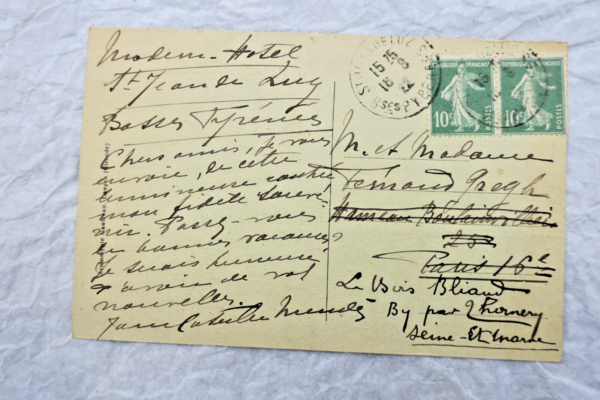 Modern-Hotel
St Jean de Luz
Basses Pyrénées
Chers amis, je vous
envoie, de cette
lumineuse contrée
mon fidèle souve-
nir. Passez-vous
de bonnes vacances?
Je serais heureuse
d'avoir de vos
nouvelles.
Jane Catulle Mendès
ST JEAN DE LUZ
15 25
16 8
BSES PYRENEES
REPUBLIQUE FRANÇAISE
10c
POSTES
REPUBLIQUE FRANÇAISE
10c
POSTES
M. et Madame
Fernand Gregh
Hameau Boulainvilliers
25
Paris 16e
Le Bois Bliaud
By par Thomery
Seine-Et-Marne